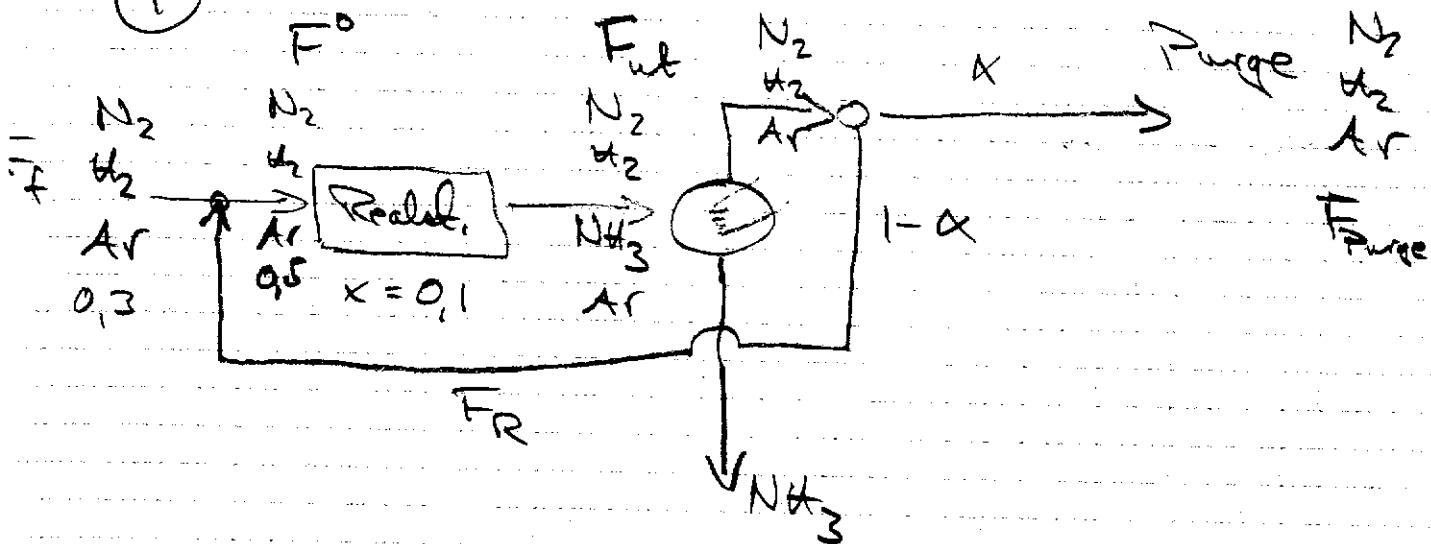 1
F° F_ut N₂ H₂ Ar α Purge N₂ H₂ Ar F_Purge
F_f N₂ H₂ Ar 0,3
N₂ H₂ Ar 0,5
Reakt.
x = 0,1
N₂ H₂ NH₃ Ar
1-α
F_R
NH₃